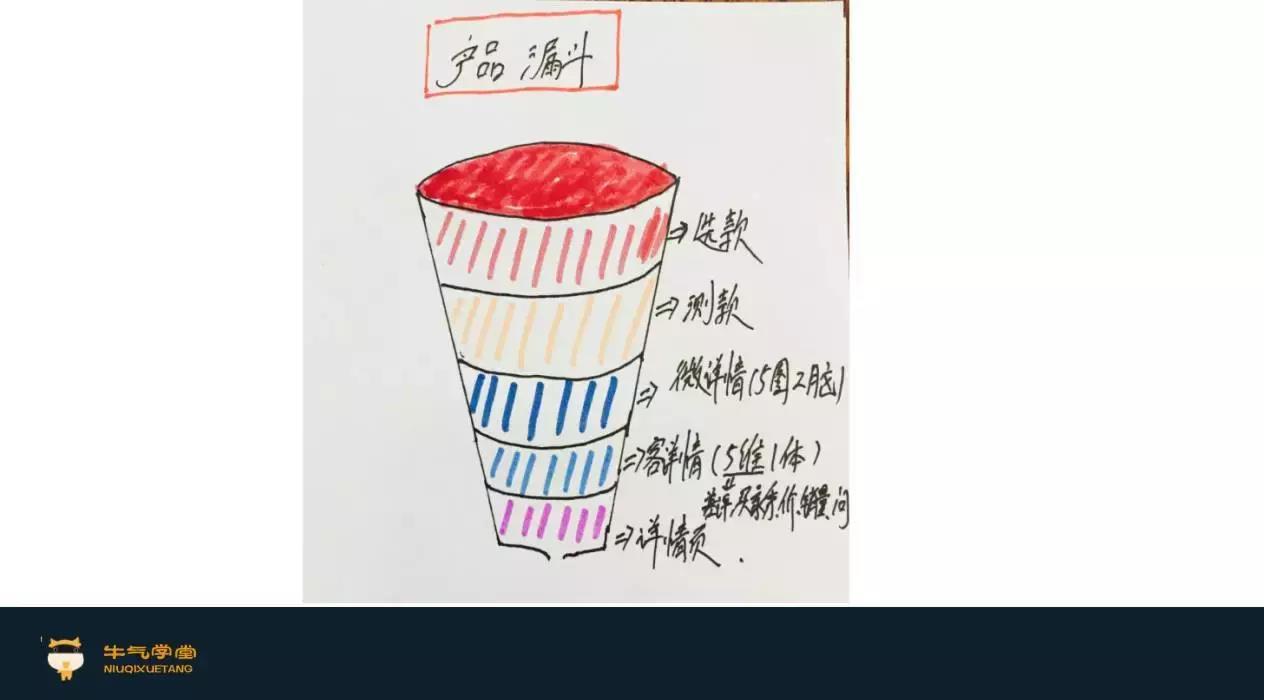 产品漏斗
⇒选款
⇒测款
⇒微详情(5图2脑)
⇒客详情(5维1体)
买家秀、价、销量、问
⇒详情页.
牛气学堂
NIUQIXUETANG